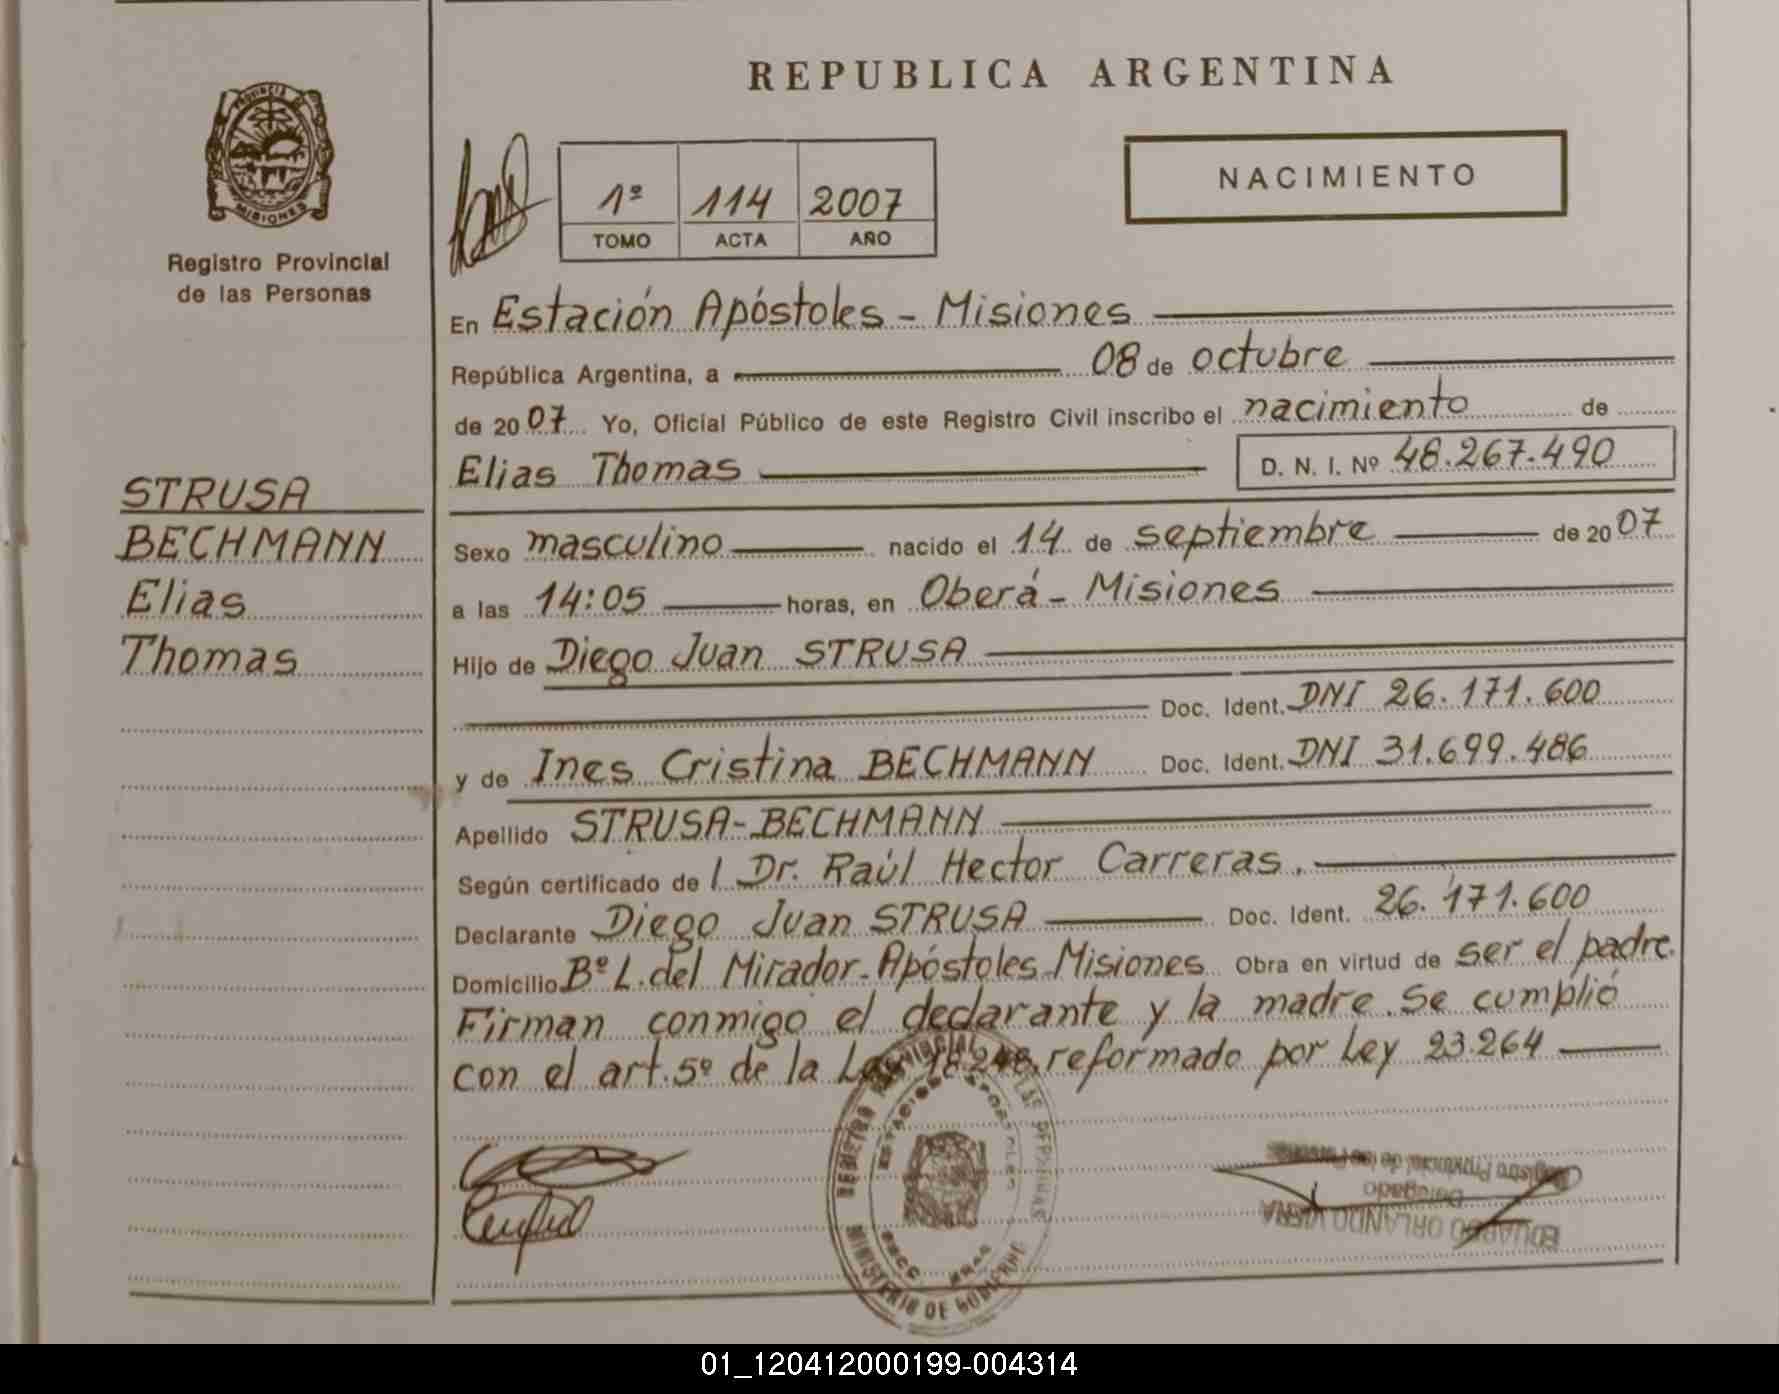 REPUBLICA ARGENTINA
PROVINCIA DE
MISIONES
Registro Provincial
de las Personas
1º 114 2007
TOMO ACTA AÑO
NACIMIENTO
En Estación Apóstoles - Misiones
República Argentina, a 08 de octubre
de 2007 Yo, Oficial Público de este Registro Civil inscribo el nacimiento de
Elias Thomas D. N. I. Nº 48.267.490
STRUSA
BECHMANN
Elias
Thomas
Sexo masculino nacido el 14 de septiembre de 2007
a las 14:05 horas, en Oberá - Misiones
Hijo de Diego Juan STRUSA
Doc. Ident. DNI 26.171.600
y de Ines Cristina BECHMANN Doc. Ident. DNI 31.699.486
Apellido STRUSA-BECHMANN
Según certificado de / Dr. Raúl Hector Carreras.
Declarante Diego Juan STRUSA Doc. Ident. 26.171.600
Domicilio Bº L. del Mirador-Apóstoles-Misiones Obra en virtud de ser el padre.
Firman conmigo el declarante y la madre. Se cumplió
con el art. 5º de la Ley 18.248, reformado por Ley 23.264
REGISTRO PROVINCIAL DE LAS PERSONAS
ESTACION APOSTOLES
MINISTERIO DE GOBIERNO
Registro Provincial de las Personas
Delegado
EDUARDO ORLANDO VIERA
01_120412000199-004314